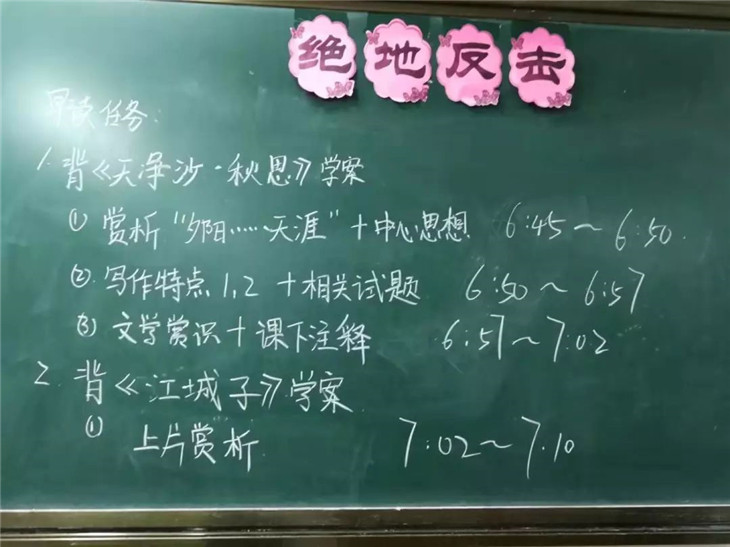 绝地反击
早读任务:
1. 背《天净沙·秋思》学案
① 赏析"夕阳……天涯"+中心思想 6:45~6:50.
② 写作特点1,2 +相关试题 6:50~6:57
③ 文学赏识+课下注释 6:57~7:02
2. 背《江城子》学案
① 上片赏析 7:02~7.10